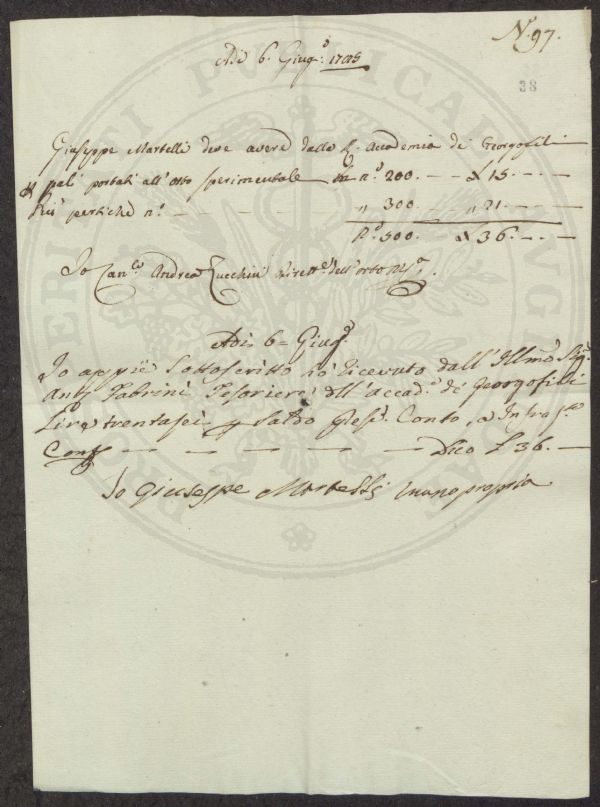 N. 97.
Adi 6. Giug.º 1785
38
Giuseppe Martelli deve avere dalla R. Accademia de Georgofili
pali portati all'Orto sperimentale n.º 200. — — £ 15. — . —
Più pertiche n.º — — — — — " 300. — — " 21. — . —
N.º 500. — £ 36. — . —
Io Can.co Andrea Zucchini Dirett.e dell'orto
Adi 6 = Giug.º
Io appiè Sottoscritto ò ricevuto dall'Illmo Sig.
Ant.º Fabrini Tesoriere dell'accad.ª de Georgofili
Lire trentasei Saldo Conto,
Conto — — — — — — Dico £ 36. —
Io Giuseppe Martelli mano propria
PROSPERITATI PUBLICAE AUGENDAE